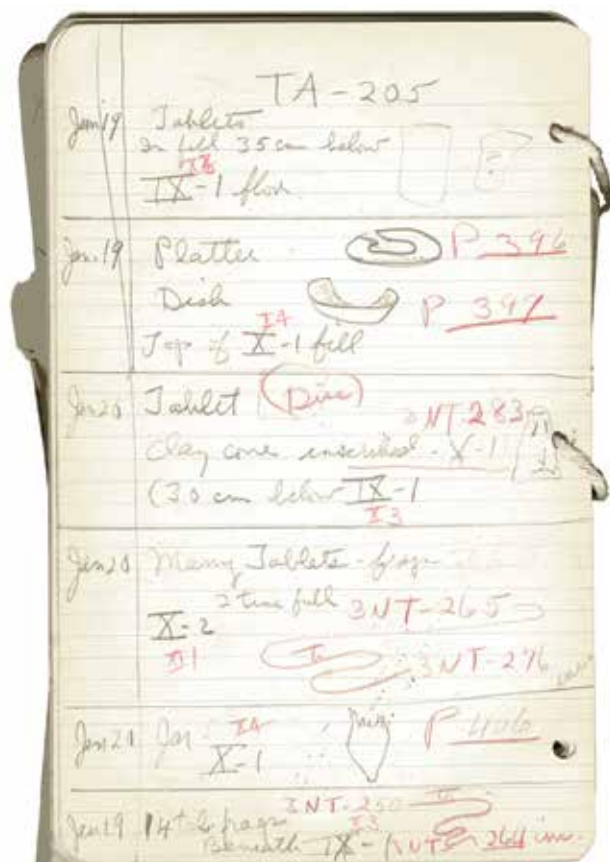 TA-205
Jan 19 Tablets
In fill 35 cm below
IX-1 floor
Jan. 19 Platter P 396
Dish P 397
X4
Top of X-1 fill
Jan 20 Tablet (Disc) 3NT-283
Clay cone inscribed - X-1
(30 cm below IX-1
X3
Jan 20 Many Tablets - frags
fill 3NT-265
X-2
XI 1 3NT-276
Jar
X-1 P 406
Jan 19 14 + 6 frags 3NT-250
Beneath IX-1 3NT-264